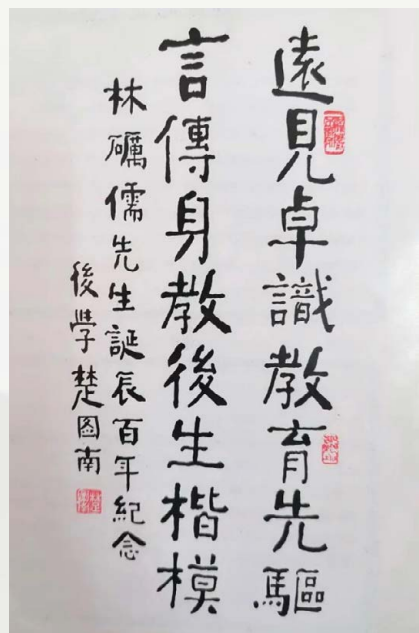 遠見卓識教育先驅
言傳身教後生楷模
林礪儒先生誕辰百年紀念
後學楚图南